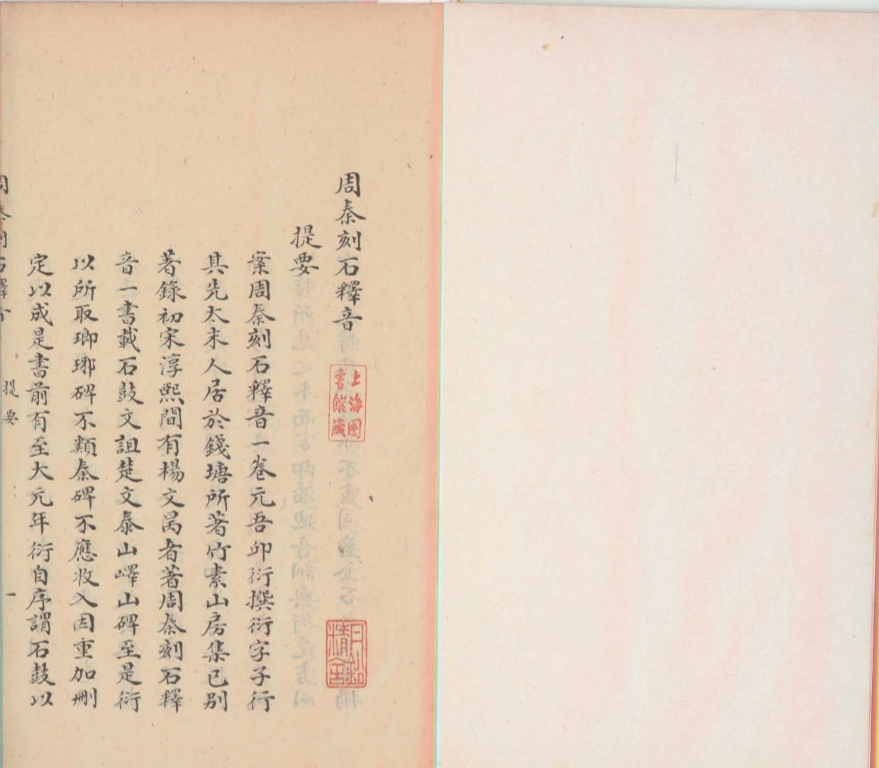 周秦刻石釋音
提要
案周秦刻石釋音一卷元吾邱衍撰衍字子行
其先太末人居於錢塘所著竹素山房集已别
著錄初宋淳熙間有楊文昺者著周秦刻石釋
音一書載石鼓文詛楚文泰山嶧山碑至是衍
以所取瑯琊碑不類秦碑不應收入因重加刪
定以成是書前有至大元年衍自序謂石鼓以
周秦刻石釋音
提要
一
上海圖書館藏